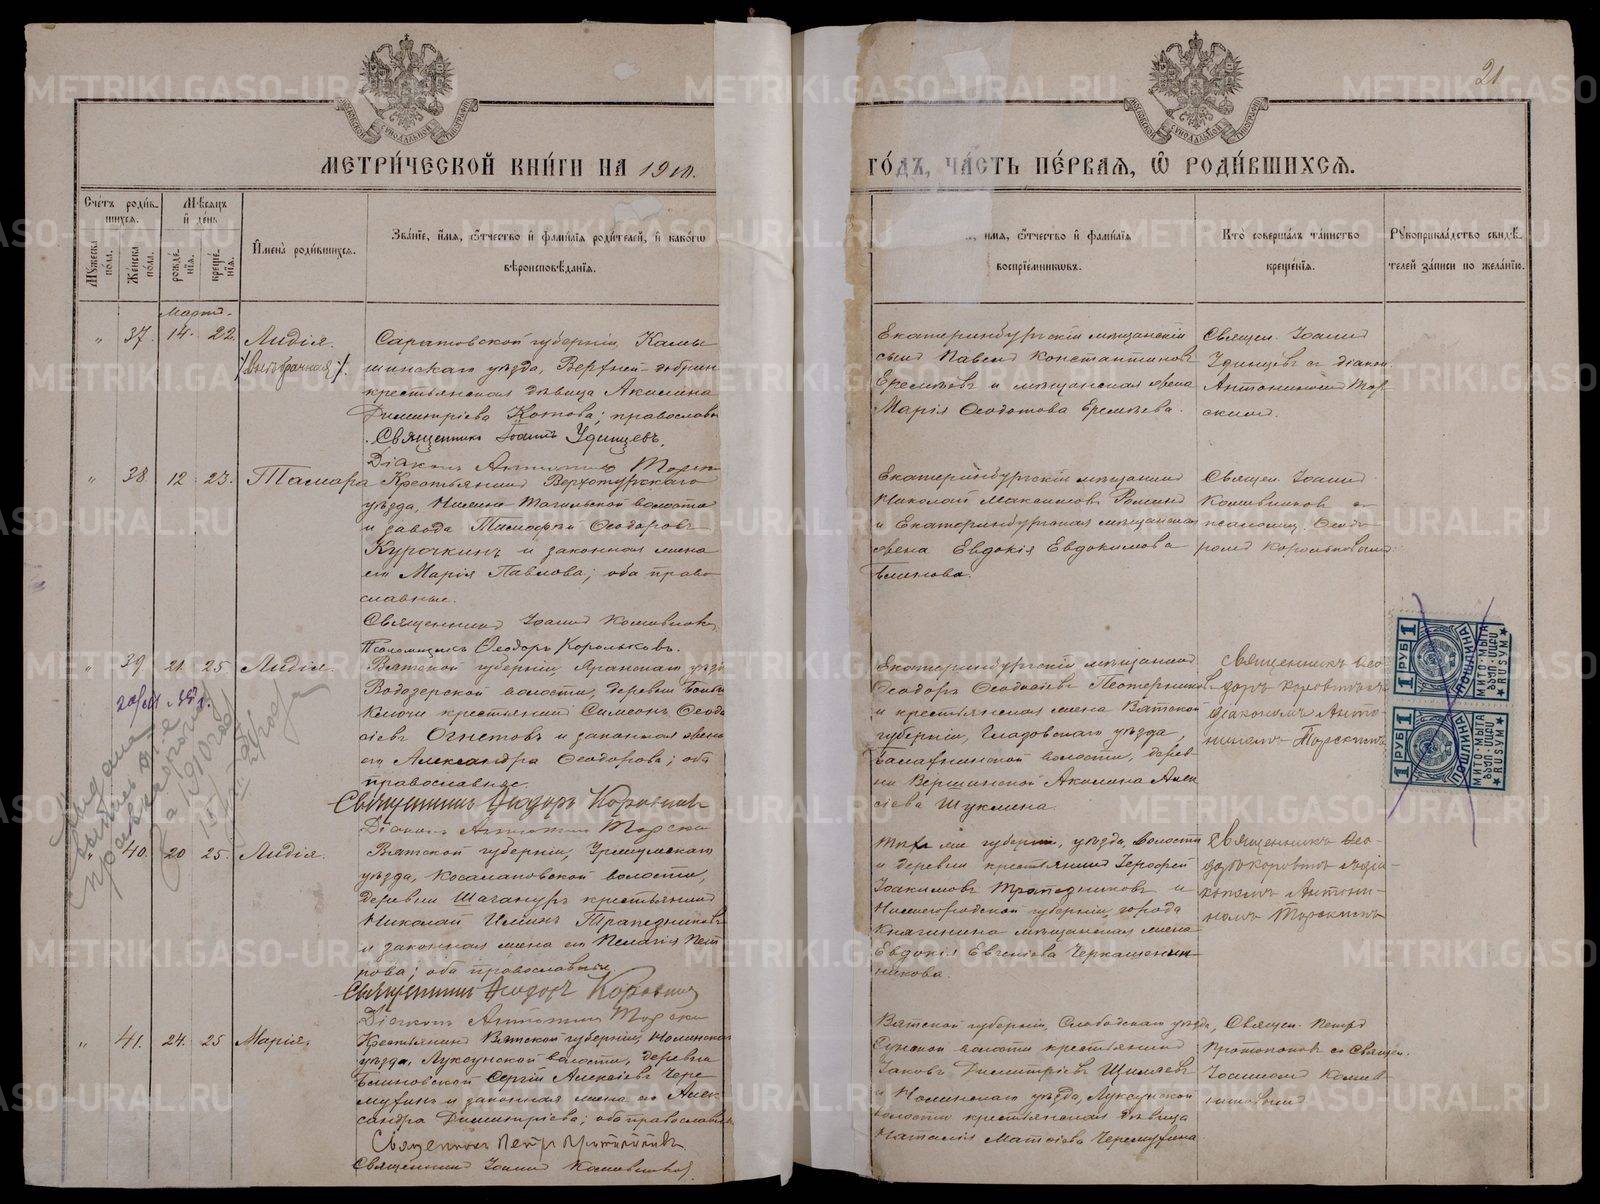 21
МЕТРИ́ЧЕСКОЙ КНИ́ГИ НА 1910.
ГО́ДЪ, ЧА́СТЬ ПЕ́РВАЯ, Ѡ РОДИ́ВШИХСЯ.
Сче́тъ роди́в-
шихся.
Му́жеска
по́ла.
Же́нска
по́ла.
Мѣ́сяцъ
и день
рожде́-
нїя.
креще́-
нїя.
Имена̀ роди́вшихся.
Зва́нїе, и́мя, ѻ҆́тчество и фами́лїя роди́телей, и како́гѡ
вѣроисповѣ́данїя.
и́мя, ѻ҆́тчество и фами́лїя
воспрїе́мниковъ.
Кто̀ соверша́лъ та́инство
креще́нїя.
Рукоприкла́дство свидѣ́-
телей за́писи по жела́нїю.
Марта.
" 37. 14. 22. Лидія.
/Внѣбрачная/.
Саратовской губерніи, Камы
шинскаго уѣзда, Верхней-добрин
крестьянская дѣвица Акилина
Димитріева Котова; православн
Священникъ Іоаннъ Удинцевъ.
Діаконъ Антонинъ Торск
Екатеринбургскій мѣщанскій
сынъ Павелъ Константиновъ
Еремѣевъ и мѣщанская жена
Марія Ѳеодотова Еремѣева.
Священ. Іоаннъ
Удинцевъ съ діакон.
Антониномъ Тор-
скимъ.
" 38 12 23. Тамара
Крестьянинъ Верхотурскаго
уѣзда, Нижне Тагильской волости
и завода Тимофей Ѳеодоровъ
Курочкинъ и законная жена
его Марія Павлова; оба право
славные.
Священникъ Іоаннъ
Псаломщикъ Ѳеодоръ Корольковъ.
Екатеринбургскій мѣщанинъ
Николай Максимовъ
и Екатеринбургская мѣщанская
жена Евдокія Евдокимова
Блинова.
Священ. Іоаннъ
съ
псаломщ. Ѳеодо
ромъ Корольковымъ.
" 39 21 25 Лидія.
Вятской губерніи, Яранскаго уѣзд
Водозерской волости, деревни
Ключи крестьянинъ Симеонъ Ѳеодо
сіевъ Огнетовъ и законная жена
его Александра Ѳеодорова; оба
православные.
Священникъ Ѳеодоръ Коровинъ
Діаконъ Антонинъ Торски
Екатеринбургскій мѣщанинъ
Ѳеодоръ
и крестьянская жена Вятской
губерніи, Глазовскаго уѣзда,
Балахнинской волости, дерев
ни Вершинской Акилина Алек
сіева Шуклина.
Священникъ Ѳео-
доръ Коровинъ съ
діакономъ Анто-
ниномъ Торскимъ
1 РУБ 1
ПОШЛИНА
МИТО·МЫТА
RUSUM
1 РУБ 1
ПОШЛИНА
МИТО·МЫТА
RUSUM
" 40. 20 25. Лидія.
Вятской губерніи, Уржумскаго
уѣзда, Косолаповской волости,
деревни крестьянинъ
Николай Ильинъ Трапезниковъ
и законная жена его Пелагія Пет
рова; оба православные
Священникъ Ѳеодоръ Коровинъ
Діаконъ Антонинъ Торски
Той же губерніи, уѣзда, волости
и деревни крестьянинъ Іерофей
Іоакимовъ Трапезниковъ и
Нижегородской губерніи, города
Княгинина мѣщанская жена
Евдокія Евгеніева
никова.
Священникъ Ѳео-
доръ Коровинъ съ діа-
кономъ Антони-
номъ Торскимъ
" 41. 24. 25 Марія.
Крестьянинъ Вятской губерніи, Нолинскаго
уѣзда, волости, деревни
Блиновской Сергій Алексіевъ Чере
мухинъ и законная жена его Алек
сандра Димитріева; оба православн
Священникъ Петръ Протопоповъ
Священникъ Іоаннъ
Вятской губерніи, Слободскаго уѣзда,
Сунской волости крестьянинъ
Іаковъ Димитріевъ
и Нолинскаго уѣзда,
волости крестьянская дѣвица
Наталія Матѳіева Черемухина
Священ. Петръ
Протопоповъ со Священ.
Іоанномъ
METRIKI.GASO-URAL.RU